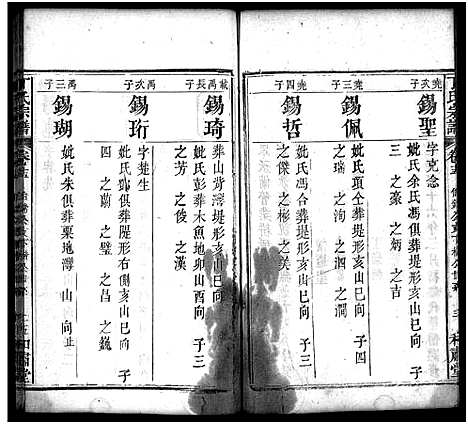 丁氏宗譜
卷五
和肅堂
堯次子
錫聖
字克念
妣氏余氏馮合葬堤形亥山巳向 子
三 之藁 之炳 之吉
堯三子
錫佩
妣氏項仝葬堤形亥山巳向 子四
之瑞 之洵 之泗 之澗
堯四子
錫哲
妣氏馮合葬堤形亥山巳向 子三
之傑 之彬 之美
禹長子
錫琦
葬山背灣堤形亥山巳向
妣氏彭葬木魚地卯山酉向 子三
之芳 之俊 之漢
禹次子
錫珩
字楚生
妣氏鄧仝葬堤形右側亥山巳向 子
四 之蘭 之璧 之昌 之巍
禹三子
錫瑚
妣氏朱俱葬栗地灣 山 向止
丁氏宗譜